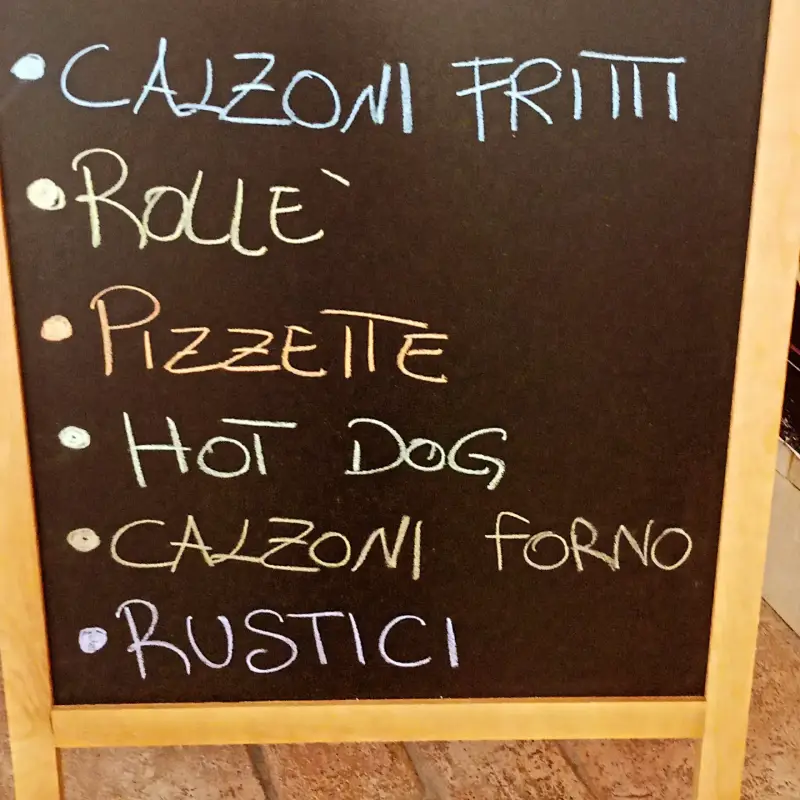 • CALZONI FRITTI
• ROLLE`
• PIZZETTE
• HOT DOG
• CALZONI FORNO
• RUSTICI